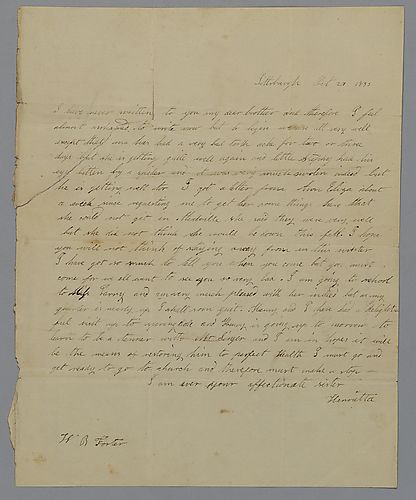 Pittsburgh Oct 20 183
I have never written to you my dear brother and therefore I feel
almost ashamed to write now but to begin we are all very well
except they ma has had a very bad tooth ache for two or three
days but she is getting quite well again and little Stephy had his
eye bitten by a and it was very much swolen indeed but
he is getting well too I got a letter from Ann Eliza about
a week since requesting me to get her some things here that
she could not get in Meadville she said they were very well
but she did not think she would be down this fall I hope
you will not think of staying away from us this winter
I have got so much to tell you when you come but you must
come for we all want to see you so very bad. I am going to school
to and am very much pleased with her indeed but as my
quarter is nearly up I shall soon quit. Henry and I have had a delight
ful visit up to and Henry is going up to morrow to
learn to be a with Mr and I am in hopes it will
be the means of restoring him to perfect Health I must go and
get ready to go to church and therefore must make a stop
I am ever your affectionate sister
Henrietta
Wm B Foster